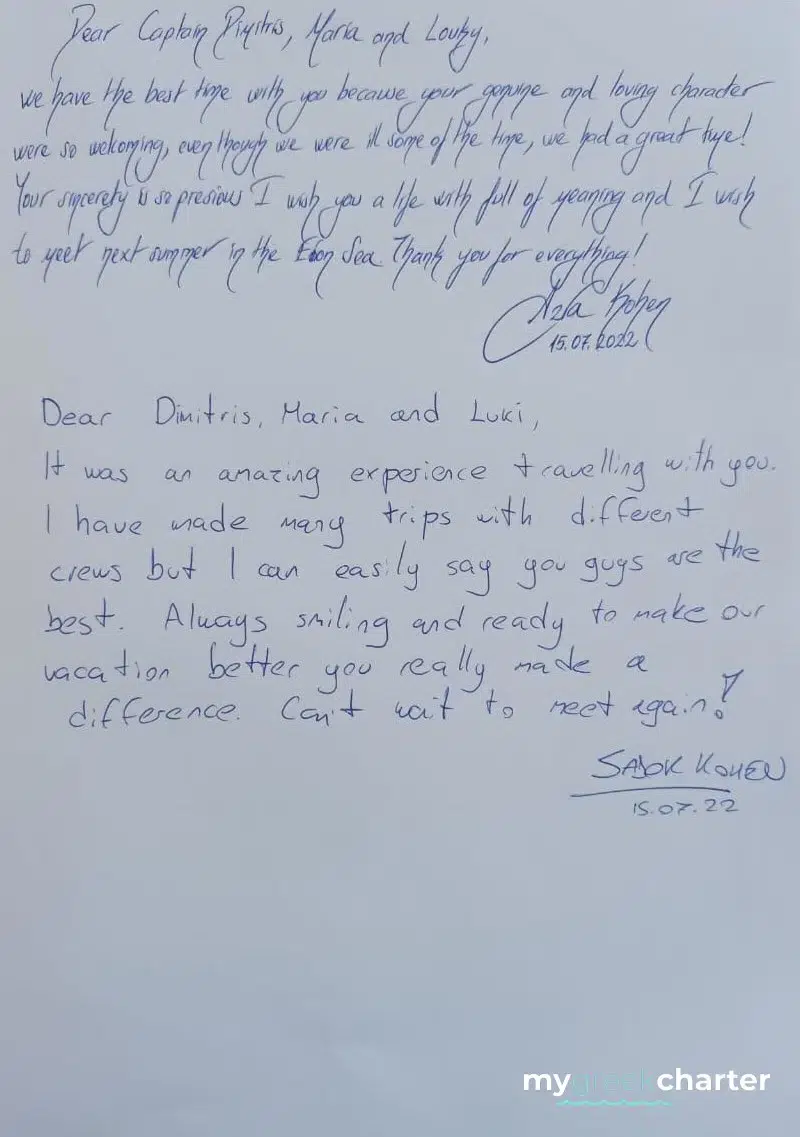 Dear Captain Dimitris, Maria and Louky,
we have the best time with you because your genuine and loving character
were so welcoming, even though we were ill some of the time, we had a great time!
Your sincerety is so presious I wish you a life with full of meaning and I wish
to meet next summer in the Sea. Thank you for everything!
Kohen
15.07.2022
Dear Dimitris, Maria and Luki,
It was an amazing experience travelling with you.
I have made many trips with different
crews but I can easily say you guys are the
best. Always smiling and ready to make our
vacation better you really made a
difference. Can't wait to meet again!
SADOK KOHEN
15.07.22
mygreekcharter